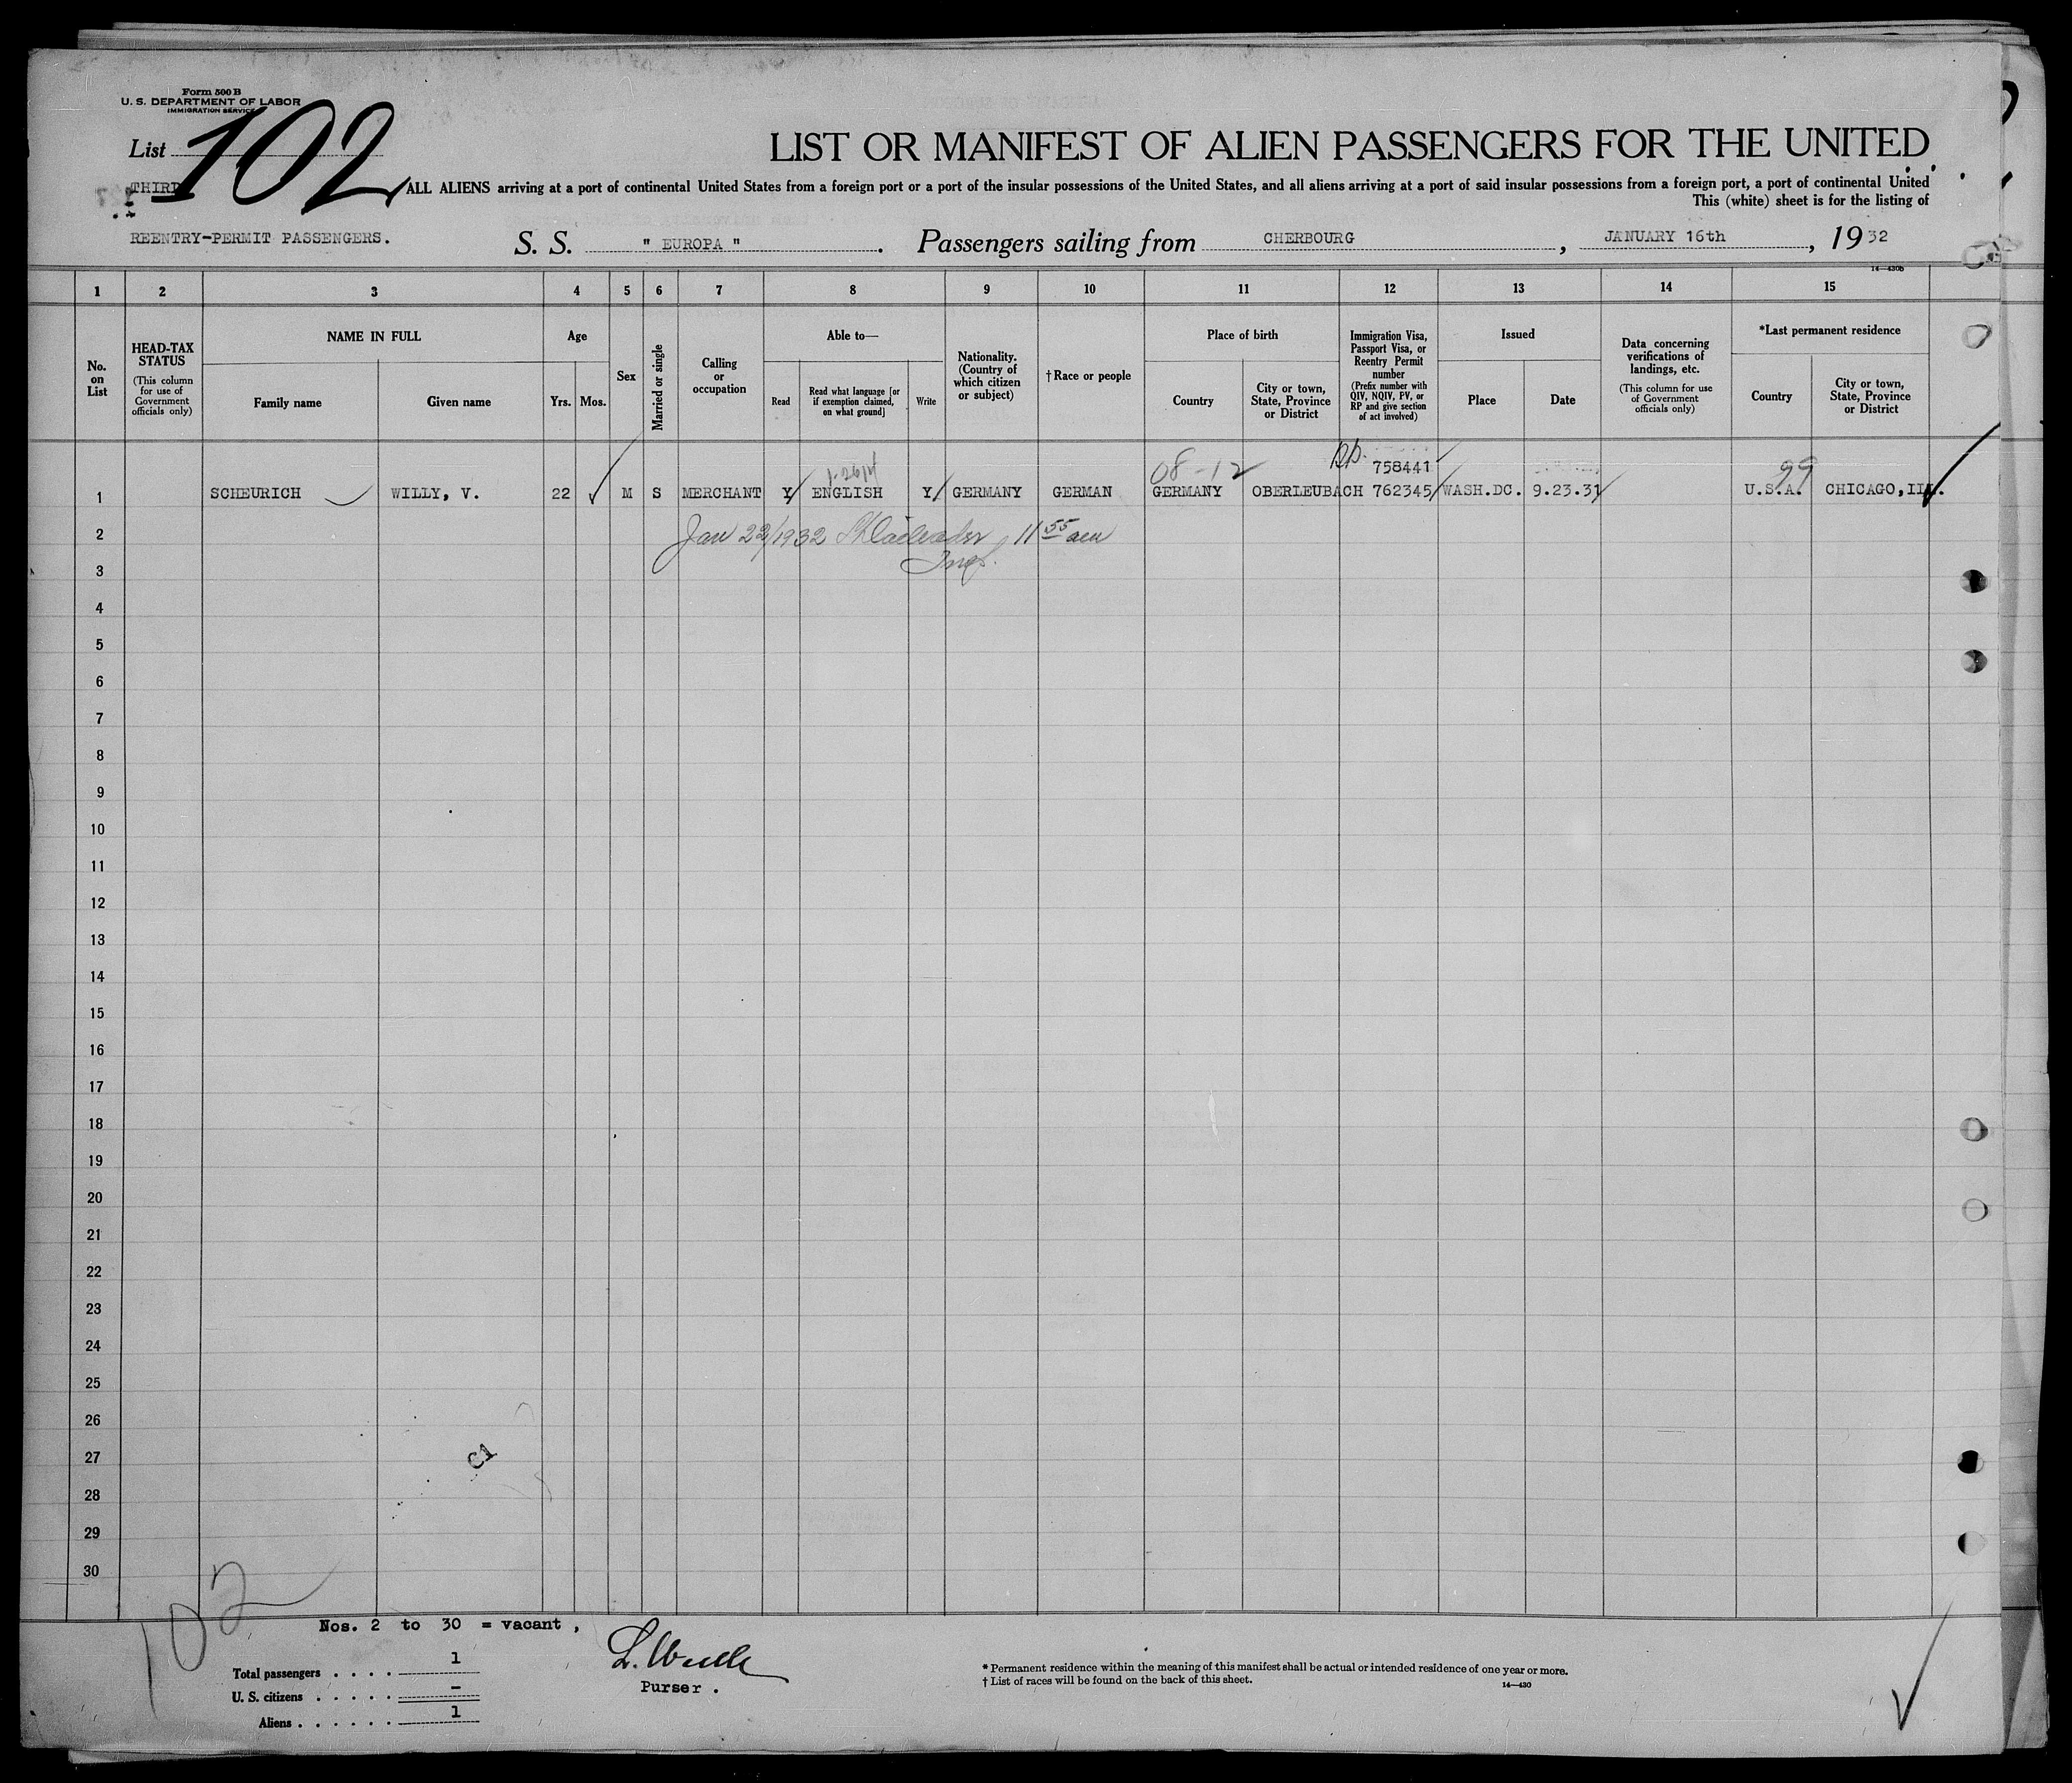 Form 500 B
U. S. DEPARTMENT OF LABOR
IMMIGRATION SERVICE
List 102
LIST OR MANIFEST OF ALIEN PASSENGERS FOR THE UNITED
THIRD
ALL ALIENS arriving at a port of continental United States from a foreign port or a port of the insular possessions of the United States, and all aliens arriving at a port of said insular possessions from a foreign port, a port of continental United
This (white) sheet is for the listing of
REENTRY-PERMIT PASSENGERS.
S. S. " EUROPA ". Passengers sailing from CHERBOURG, JANUARY 16th, 19 32
14—430b
1 2 3 4 5 6 7 8 9 10 11 12 13 14 15
No. on List
HEAD-TAX STATUS
(This column for use of Government officials only)
NAME IN FULL
Family name
Given name
Age
Yrs.
Mos.
Sex
Married or single
Calling or occupation
Able to—
Read
Read what language [or if exemption claimed, on what ground]
Write
Nationality. (Country of which citizen or subject)
† Race or people
Place of birth
Country
City or town, State, Province or District
Immigration Visa, Passport Visa, or Reentry Permit number
(Prefix number with QIV, NQIV, PV, or RP and give section of act involved)
Issued
Place
Date
Data concerning verifications of landings, etc.
(This column for use of Government officials only)
*Last permanent residence
Country
City or town, State, Province or District
08-12 RP. 758441 99
1 SCHEURICH WILLY, V. 22 M S MERCHANT Y ENGLISH Y GERMANY GERMAN GERMANY OBERLEUBACH 762345 WASH.DC. 9.23.31 U.S.A. CHICAGO,ILL.
2 Jan 22/1932 11 55 am
3 Insp.
4
5
6
7
8
9
10
11
12
13
14
15
16
17
18
19
20
21
22
23
24
25
26
27
28
29
30
102
Nos. 2 to 30 = vacant ,
Total passengers . . . . 1
U. S. citizens . . . . . –
Aliens . . . . . . 1
Purser .
* Permanent residence within the meaning of this manifest shall be actual or intended residence of one year or more.
† List of races will be found on the back of this sheet.
14—430